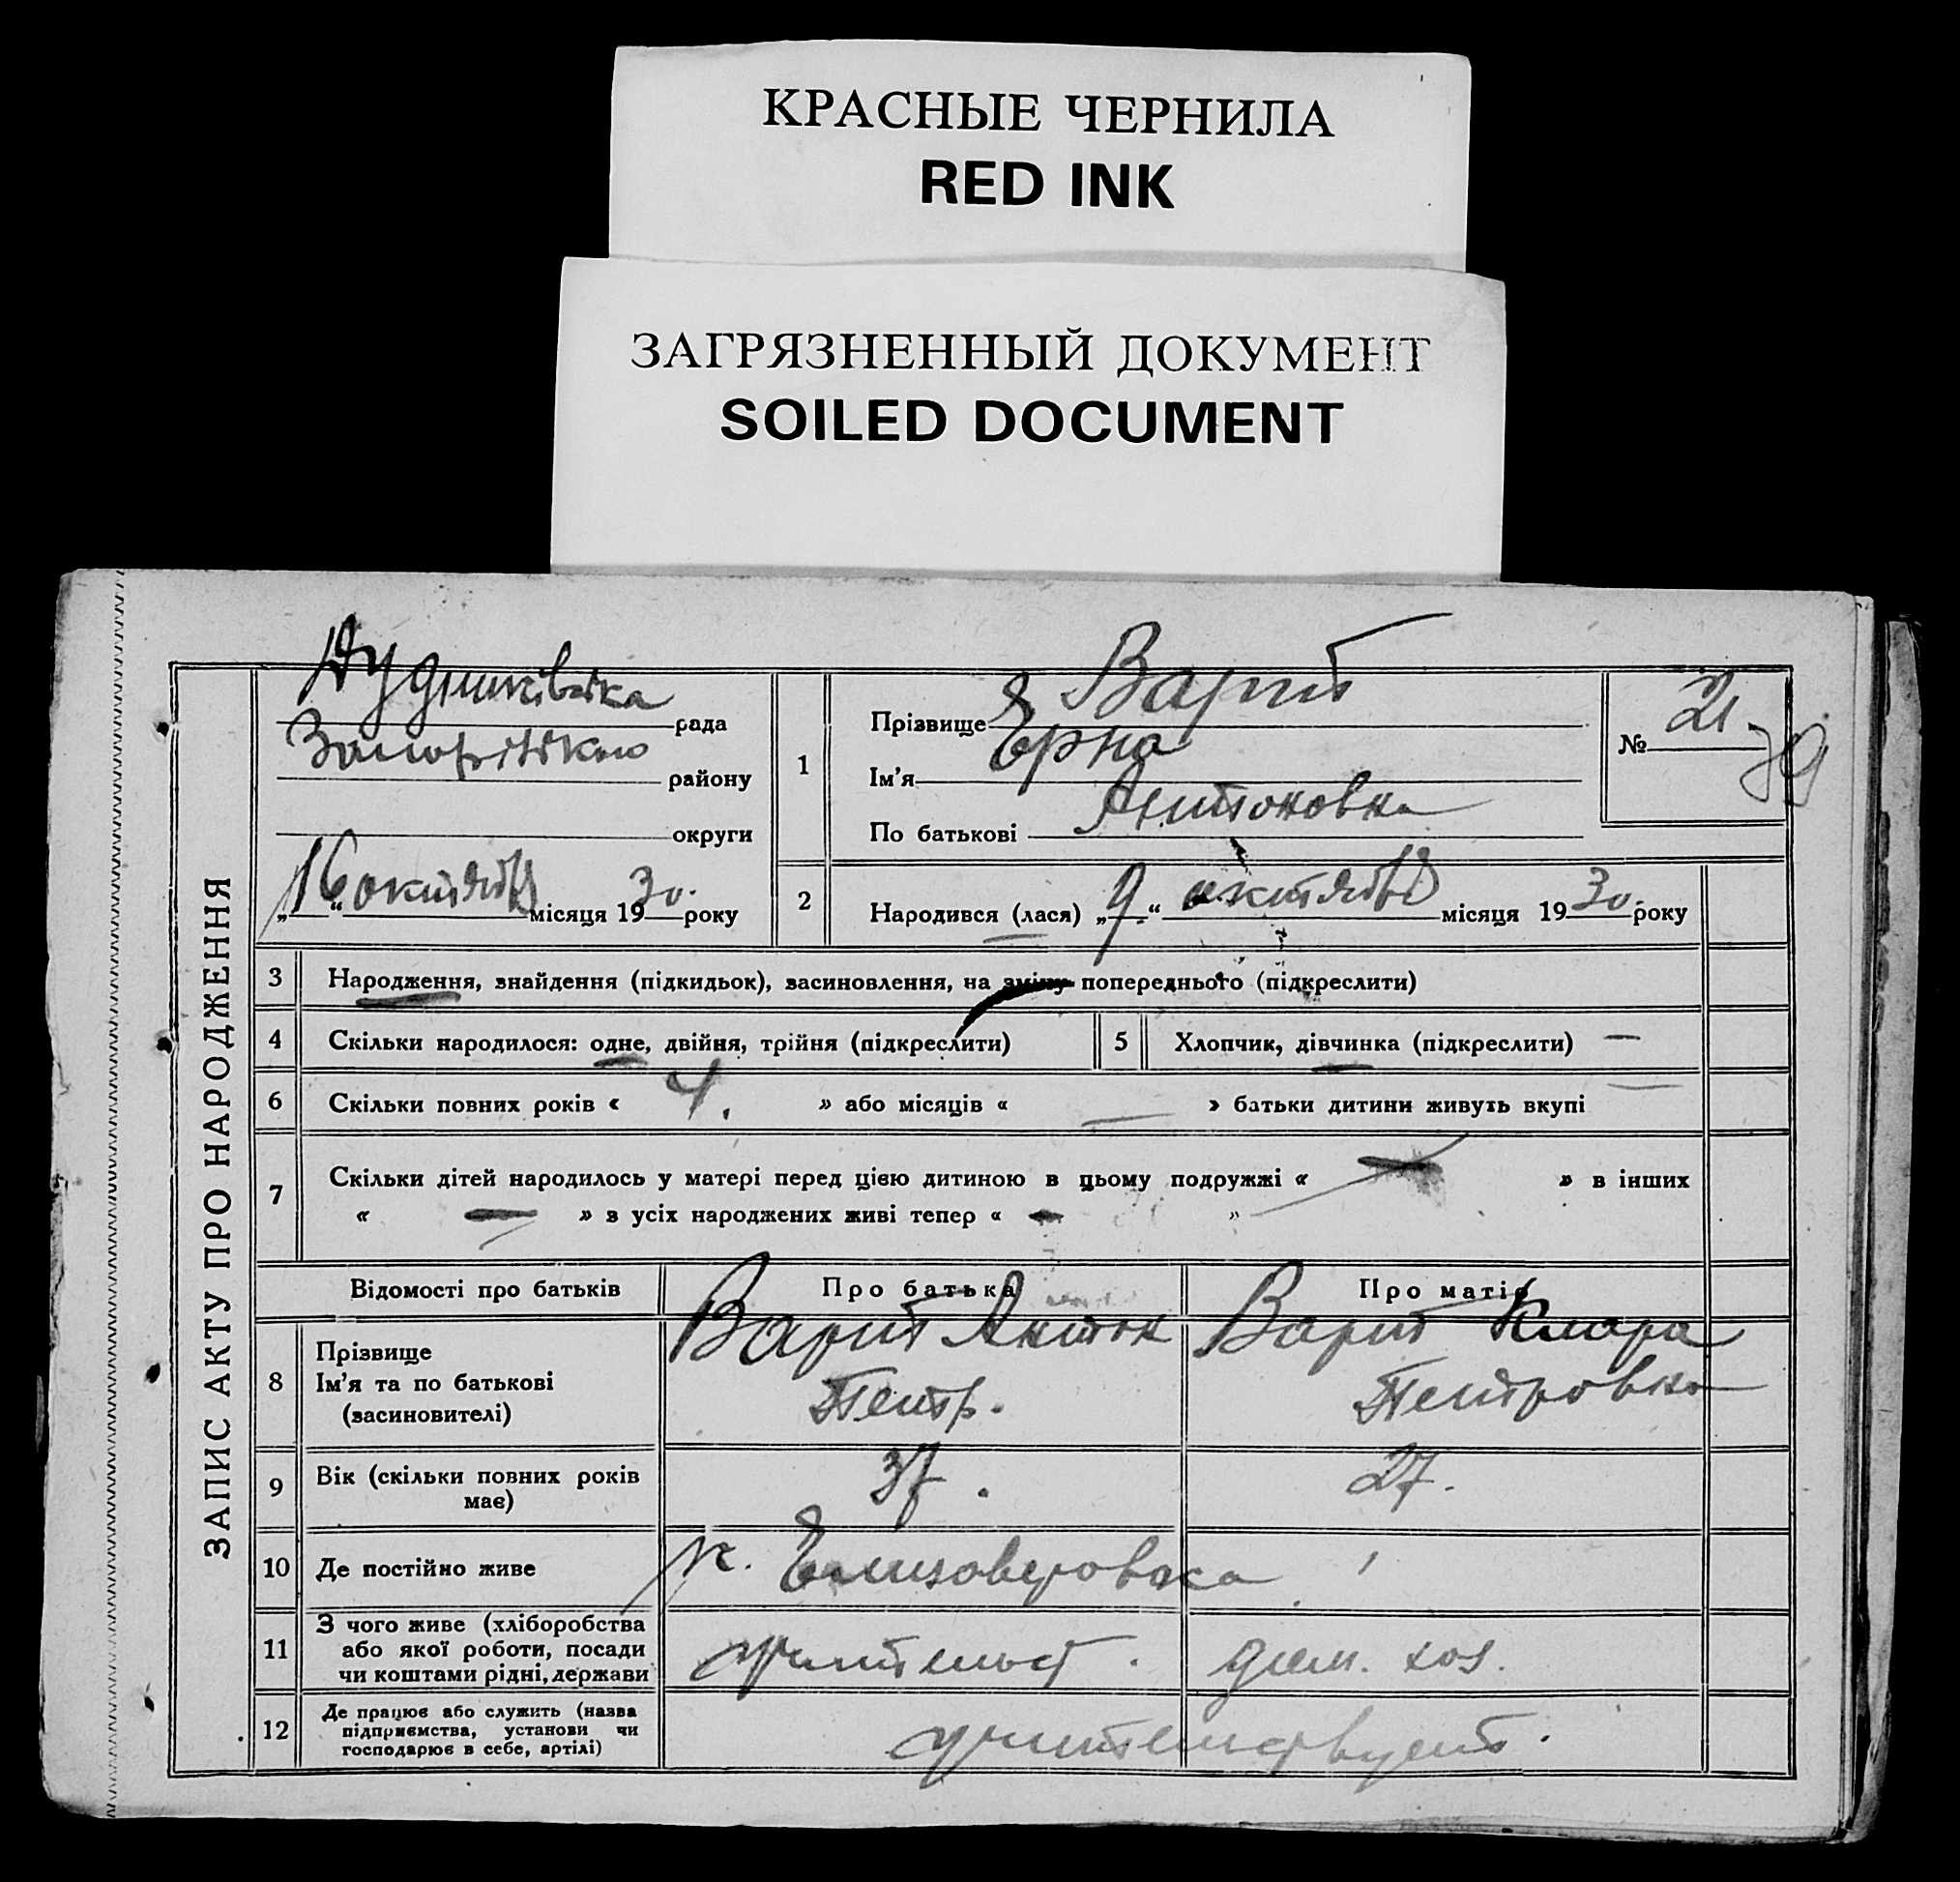 КРАСНЫЕ ЧЕРНИЛА
RED INK
ЗАГРЯЗНЕННЫЙ ДОКУМЕНТ
SOILED DOCUMENT
ЗАПИС АКТУ ПРО НАРОДЖЕННЯ
рада
району
округи
„16“ октября місяця 1930. року
1
Прізвище Варт
Ім'я Ерна
По батькові Антоновна
№ 21
2
Народився (лася) „9.“ октября місяця 1930. року
3 Народження, знайдення (підкидьок), засиновлення, на зміну попереднього (підкреслити)
4 Скільки народилося: одне, двійня, трійня (підкреслити)
5 Хлопчик, дівчинка (підкреслити) —
6 Скільки повних років « 4. » або місяців « — » батьки дитини живуть вкупі
7 Скільки дітей народилось у матері перед цією дитиною в цьому подружжі « » в інших
« — » в усіх народжених живі тепер « - »
Відомості про батьків
Про батька
Про матір
8 Прізвище
Ім'я та по батькові
(засиновителі)
Варт Антон
Петр.
Варт Клара
Петровна
9 Вік (скільки повних років
має)
37.
27.
10 Де постійно живе
к.
11 З чого живе (хліборобства
або якої роботи, посади
чи коштами рідні, держави
дом. хоз.
12 Де працює або служить (назва
підприємства, установи чи
господарює в себе, артілі)
учительствует.